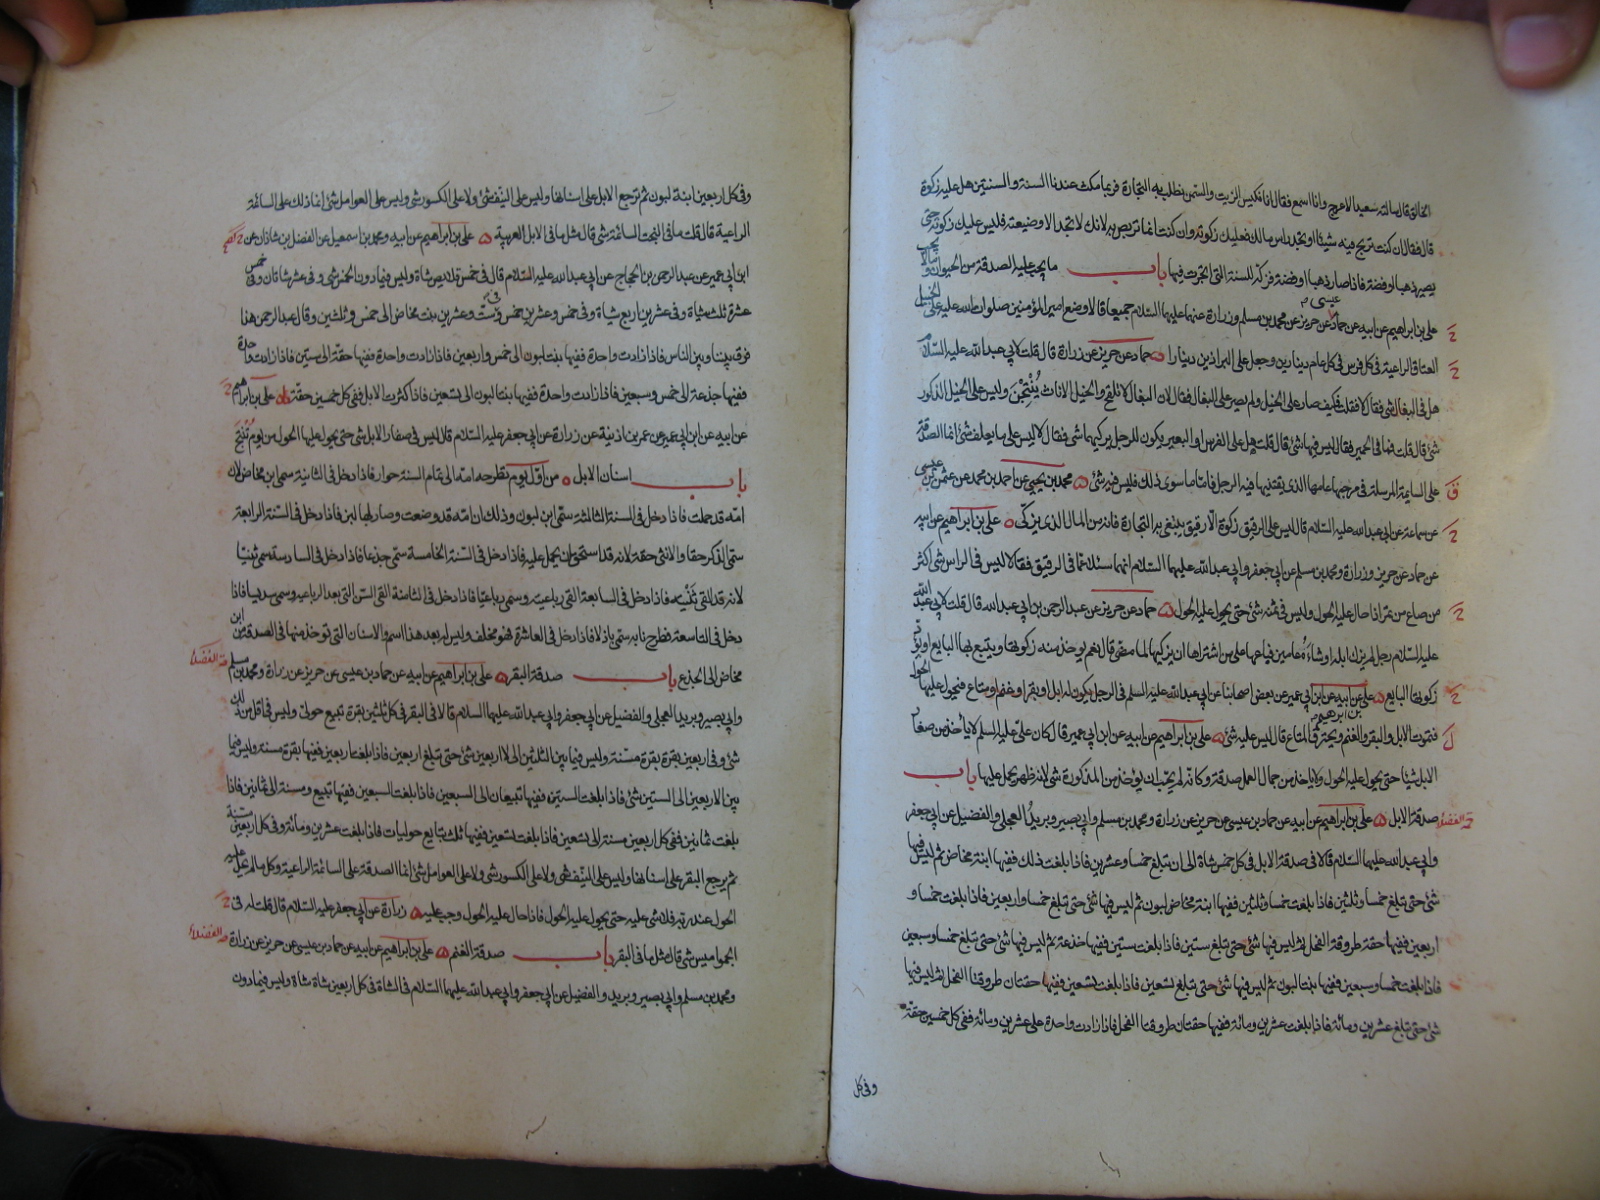 الخالق قال سأله سعيد الاعرج وانا اسمع فقال انا نكبس الزيت والسمن نطلب به التجارة فربما مكث عندنا السنة والسنتين هل عليه زكوة
قال فقال ان كنت تربح فيه شيئا او تجد راس مالك فعليك زكوته وان كنت انما تربص به لانك لا تجد الا وضيعته فليس عليك زكوته حتى
يصير ذهبا او فضة فاذا صار ذهبا او فضة فزكه للسنة التي اتجرت فيها باب ما يجب عليه الصدقة من الحيوان وما لا يجب
علي بن ابراهيم عن ابيه عن حماد بن عيسى عن حريز عن محمد بن مسلم وزرارة عنهما عليهما السلام جميعا قالا وضع امير المؤمنين صلوات الله عليه على الخيل
العتاق الراعية في كل فرس في كل عام دينارين وجعل على البراذين دينارا حماد عن حريز عن زرارة قال قلت لابي عبد الله عليه السلام
هل في البغال شئ فقال لا فقلت فكيف صار على الخيل ولم يصر على البغال فقال لان البغال لا تلقح والخيل الاناث ينتجن وليس على الخيل الذكور
شئ قال قلت فما في الحمير فقال ليس فيها شئ قال قلت هل على الفرس او البعير يكون للرجل يركبهما شئ فقال لا ليس على ما يعلف شئ انما الصدقة
على السائمة المرسلة في مرجها عامها الذي يقتنيها فيه الرجل فاما ما سوى ذلك فليس فيه شئ محمد بن يحيى عن احمد بن محمد عن عثمن بن عيسى
عن سماعة عن ابي عبد الله عليه السلام قال ليس على الرقيق زكوة الا رقيق يبتغى به التجارة فانه من المال الذي يزكى علي بن ابراهيم عن ابيه
عن حماد عن حريز عن زرارة ومحمد بن مسلم عن ابي جعفر وابي عبد الله عليهما السلام انهما سئلا عما في الرقيق فقالا ليس في الراس شئ اكثر
من صاع من تمر اذا حال عليه الحول وليس في ثمنه شئ حتى يحول عليه الحول حماد عن حريز عن عبد الرحمن بن ابي عبد الله قال قلت لابي عبد الله
عليه السلام رجل لم يزك ابله او شاءه عامين فباعها على من اشتراها ان يزكيها لما مضى قال نعم يوخذ منه زكوتها ويتبع بها البايع او يؤدي
زكوتها البايع علي عن ابيه عن ابن ابي عمير عن بعض اصحابنا عن ابي عبد الله عليه السلم في الرجل يكون له ابل او بقر او غنم او متاع فيحول عليها الحول
فتموت الابل والبقر والغنم ويحترق المتاع قال ليس عليه شئ علي بن ابراهيم عن ابيه عن ابن ابي عمير قال كان علي عليه السلم لا يأخذ من صغار
الابل شيئا حتى يحول عليه الحول ولا ياخذ من جمال العمل صدقة وكانه لم يحب ان يوخذ من الذكورة شئ لانه ظهر يحمل عليها باب
صدقة الابل علي بن ابراهيم عن ابيه عن حماد بن عيسى عن حريز عن زرارة ومحمد بن مسلم وابي بصير وبريد العجلي والفضيل عن ابي جعفر
وابي عبد الله عليهما السلام قالا في صدقة الابل في كل خمس شاة الى ان تبلغ خمسا وعشرين فاذا بلغت ذلك ففيها ابنة مخاض ثم ليس فيها
شئ حتى تبلغ خمسا وثلثين فاذا بلغت خمسا وثلثين ففيها ابنة لبون ثم ليس فيها شئ حتى تبلغ خمسا واربعين فاذا بلغت خمسا و
اربعين ففيها حقة طروقة الفحل ثم ليس فيها شئ حتى تبلغ ستين فاذا بلغت ستين ففيها جذعة ثم ليس فيها شئ حتى تبلغ خمسا وسبعين
فاذا بلغت خمسا وسبعين ففيها بنتا لبون ثم ليس فيها شئ حتى تبلغ تسعين فاذا بلغت تسعين ففيها حقتان طروقتا الفحل ثم ليس فيها
شئ حتى تبلغ عشرين ومائة فاذا بلغت عشرين ومائة ففيها حقتان طروقتا الفحل فاذا زادت واحدة على عشرين ومائة ففي كل خمسين حقة
وفي كل
وفي كل اربعين ابنة لبون ثم ترجع الابل على اسنانها وليس على النيف شئ ولا على الكسور شئ وليس على العوامل شئ انما ذلك على السائمة
الراعية قال قلت ما في البخت السائمة شئ قال مثل ما في الابل العربية علي بن ابراهيم عن ابيه ومحمد بن اسمعيل عن الفضل بن شاذان عن
ابن ابي عمير عن عبد الرحمن بن الحجاج عن ابي عبد الله عليه السلام قال في خمس قلايص شاة وليس فيما دون الخمس شئ وفي عشر شاتان وفي خمس
عشرة ثلث شياة وفي عشرين اربع شياة وفي خمس وعشرين خمس وفي ست وعشرين بنت مخاض الى خمس وثلثين وقال عبد الرحمن هذا
فرق بيننا وبين الناس فاذا زادت واحدة ففيها بنت لبون الى خمس واربعين فاذا زادت واحدة ففيها حقة الى ستين فاذا زادت واحدة
ففيها جذعة الى خمس وسبعين فاذا زادت واحدة ففيها بنتا لبون الى تسعين فاذا كثرت الابل ففي كل خمسين حقة علي بن ابراهيم
عن ابيه عن ابن ابي عمير عن عمر بن اذينة عن زرارة عن ابي جعفر عليه السلام قال ليس في صغار الابل شئ حتى يحول عليها الحول من يوم تنتج
باب اسنان الابل من اول يوم تطرحه امه الى تمام السنة حوار فاذا دخل في الثانية سمي ابن مخاض لان
امه قد حملت فاذا دخل في السنة الثالثة سمي ابن لبون وذلك ان امه قد وضعت وصار لها لبن فاذا دخل في السنة الرابعة
سمي الذكر حقا والانثى حقة لانه قد استحق ان يحمل عليه فاذا دخل في السنة الخامسة سمي جذعا فاذا دخل في السادسة سمي ثنيا
لانه قد القى ثنيته فاذا دخل في السابعة القى رباعيته وسمي رباعيا فاذا دخل في الثامنة القى السن التي بعد الرباعية وسمي سديسا فاذا
دخل في التاسعة فطر نابه سمي بازلا فاذا دخل في العاشرة فهو مخلف وليس له بعد هذا اسم والاسنان التي توخذ منها في الصدقة من ابن
مخاض الى الجذع باب صدقة البقر علي بن ابراهيم عن ابيه عن حماد بن عيسى عن حريز عن زرارة ومحمد بن مسلم
وابي بصير وبريد العجلي والفضيل عن ابي جعفر وابي عبد الله عليهما السلام قالا في البقر في كل ثلثين بقرة تبيع حولي وليس في اقل من ذلك
شئ وفي اربعين بقرة بقرة مسنة وليس فيما بين الثلثين الى الاربعين شئ حتى تبلغ اربعين فاذا بلغت اربعين ففيها بقرة مسنة وليس فيما
بين الاربعين الى الستين شئ فاذا بلغت الستين ففيها تبيعان الى السبعين فاذا بلغت السبعين ففيها تبيع ومسنة الى ثمانين فاذا
بلغت ثمانين ففي كل اربعين مسنة الى تسعين فاذا بلغت تسعين ففيها ثلث تبايع حوليات فاذا بلغت عشرين ومائة وفي كل اربعين مسنة
ثم يرجع البقر على اسنانها وليس على النيف شئ ولا على الكسور شئ ولا على العوامل شئ انما الصدقة على السائمة الراعية وكل ما لم يحل عليه
الحول عند ربه فلا شئ عليه حتى يحول عليه الحول فاذا حال عليه الحول وجب عليه زرارة عن ابي جعفر عليه السلام قال قلت له في
الجواميس شئ قال مثل ما في البقر باب صدقة الغنم علي بن ابراهيم عن ابيه عن حماد بن عيسى عن حريز عن زرارة
ومحمد بن مسلم وابي بصير وبريد والفضيل عن ابي جعفر وابي عبد الله عليهما السلام في الشاة في كل اربعين شاة شاة وليس فيما دون